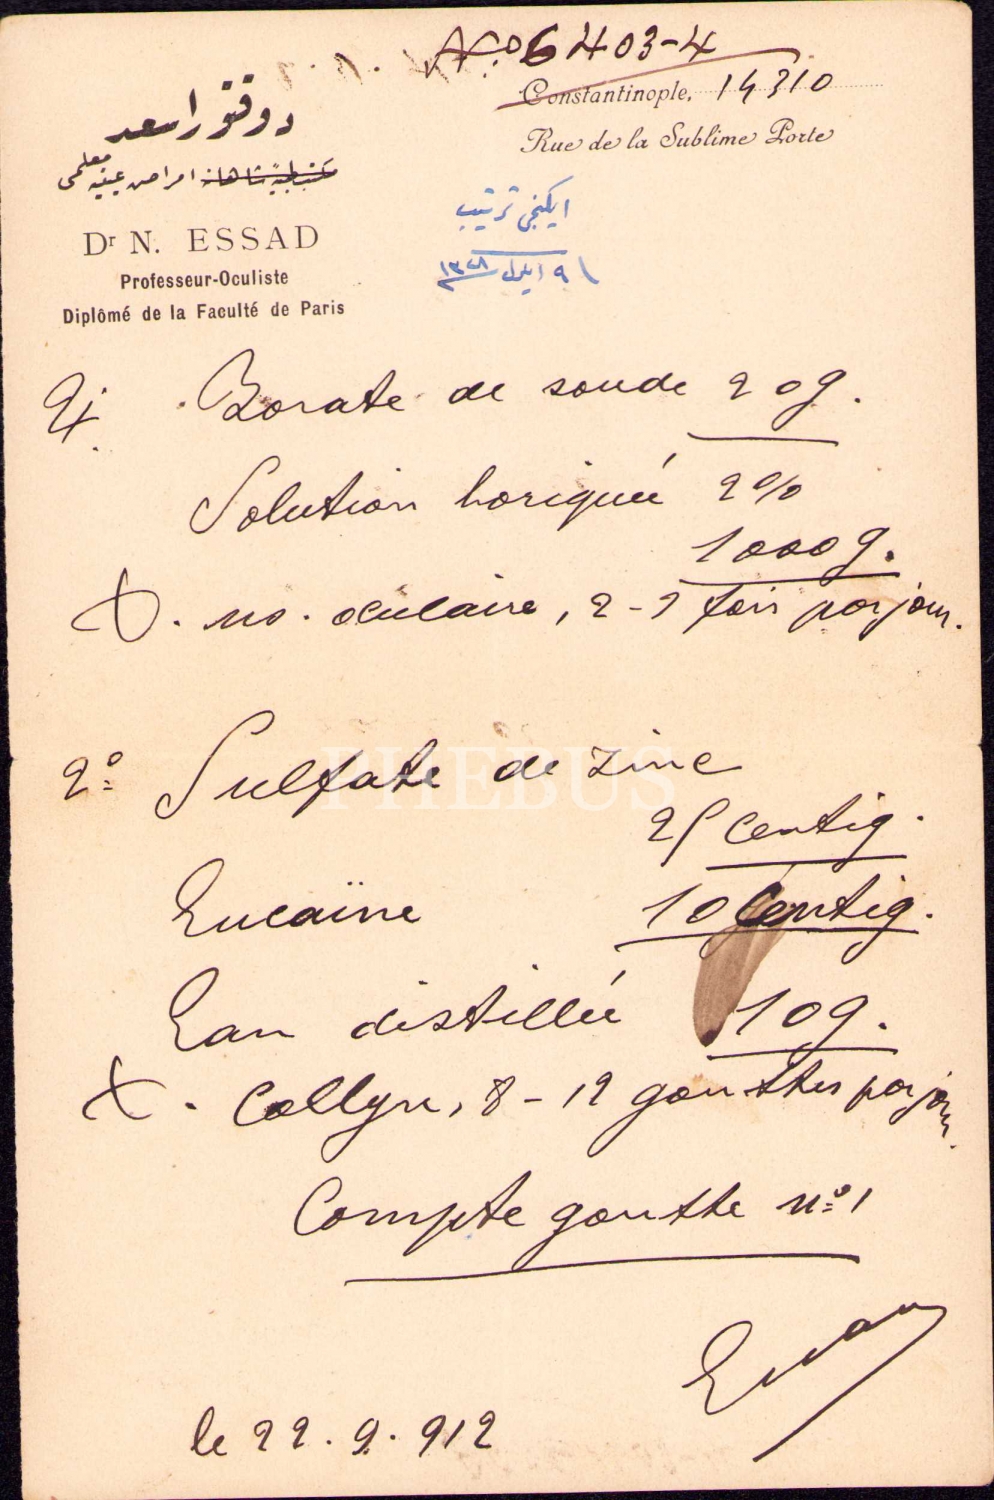 No 6403-4
Constantinople, 14310
Rue de la Sublime Porte
دوقتور اسعد
امراض عينيه معلمى
Dr N. ESSAD
Professeur-Oculiste
Diplômé de la Faculté de Paris
ايكنجى ترتيب
١٩ ايلول ١٣٢٨
Borate de soude 20g.
Solution boriquée 2%
1000g.
oculaire, 2-3 fois par jour.
2º Sulfate de zinc
25 centig.
Eucaïne 10 Centig.
Eau distillée 10g.
Collyre, 8-12 gouttes par jour.
Compte goutte nº 1
le 22.9.912
PHEBUS